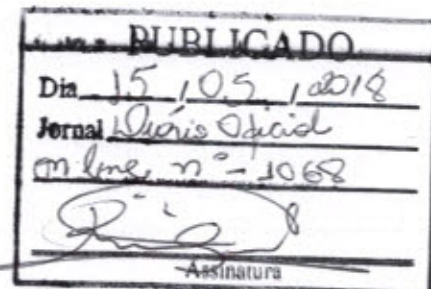 PUBLICADO
Dia 15 / 05 / 2018
Jornal Diário Oficial
on line, nº - 1068
Assinatura